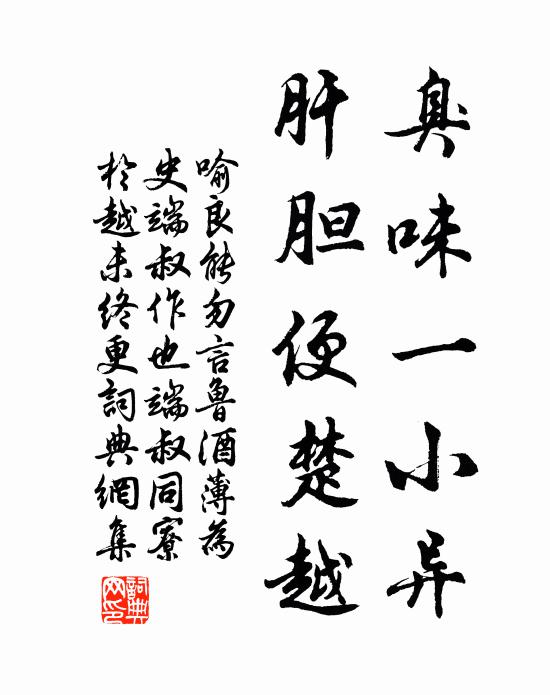 臭味一小异
肝胆便楚越
喻良能勿言魯酒薄為
史端叔作也端叔同寮
於越未终更詞典網集
詞典網印